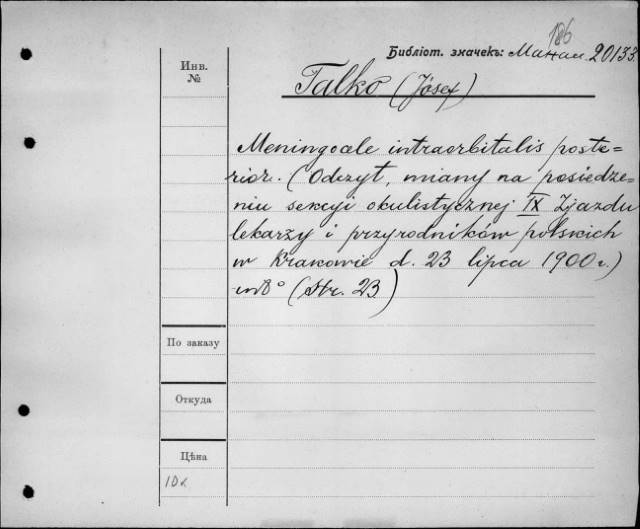 186
Библіот. значекъ: Махан. 20133.
Инв.
№
Talko (Józef)
Meningocele intraorbitalis poste=
rior. (Odczyt, miany na posiedze=
niu sekcyi okulistycznej IX Zjazdu
lekarzy i przyrodników polskich
w Krakowie d. 23 lipca 1900 r.)
in 8° (str. 23)
По заказу
Откуда
Цѣна
10к